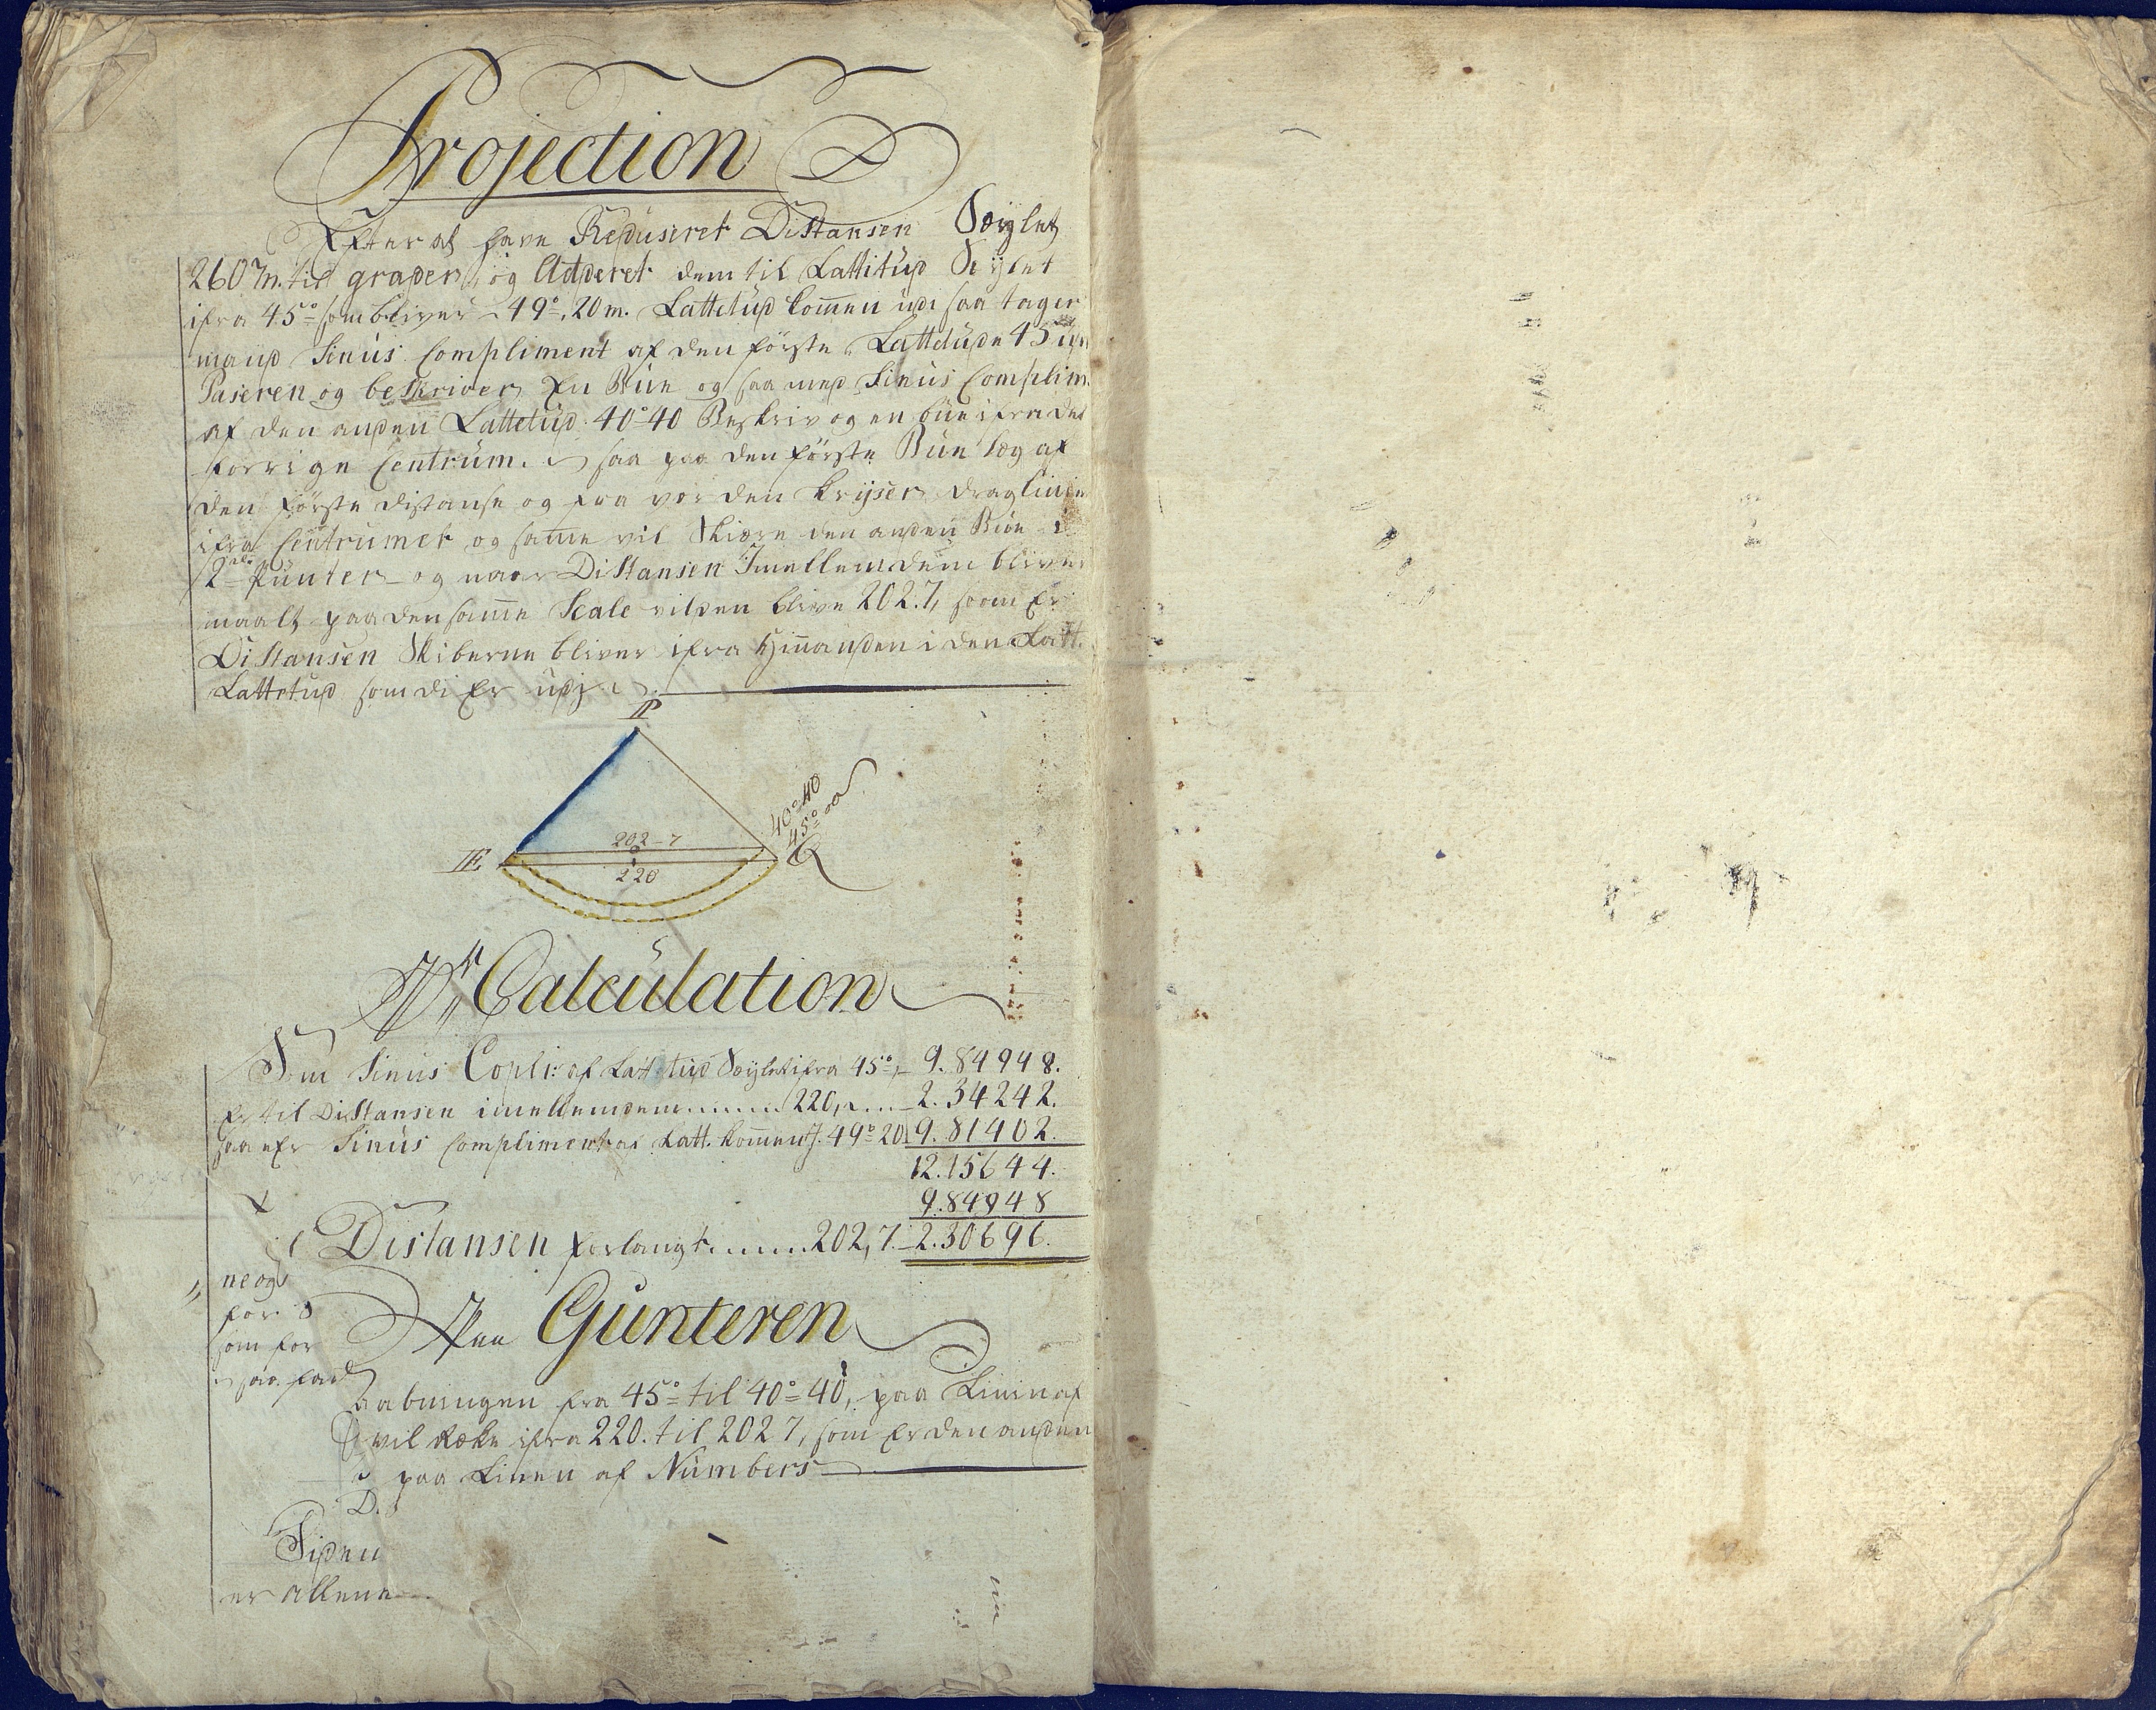 Projection
Efter at have Reduseret Distansen Seÿlet
260 m. til grader, og Adderet dem til Lattitud Seÿlet
ifra 45° som bliver 49°, 20 m. Lattetud kommen udi saa tager
mand Sinus Compliment af den förste Lattetude 45
Paseren og beskriver En Bue og saa med Sinus Complim.
af den anden Lattetud 40°40 Beskriv og en bue ifra det
forrige Centrum. saa paa den förste Bue Læg af
den förste distanse og fra vor den krÿser drag linier
ifra Centrumet og samme vil Skiære den anden Bue i
2de Punter og naar Distansen Imellem dem bliver
maalt paa den samme Scale vil den blive 202.7, som Er
Distansen Skiberne bliver ifra Hinanden i den Latt.
Lattetud som di Er udj
P
40°40
45°00
202-7
Æ
Q
220
Pr Calculation
Som Sinus Copli: af Lattetud Seÿlet ifra 45°, 9.84948.
Er til Distansen imellem dem ........ 220, .... 2.34242.
saa Er Sinus Compliment af Latt. kommen J. 49°20 9.81402.
12.15644.
9.84948
Distansen forlangt ...... 202,7. 2.30696.
ne og
for
som for
saa
Paa Gunteren
aabningen fra 45° til 40°40, paa Linen af
vil Række ifra 220. til 202 7, som Er den anden
paa Linen af Numbers
D.
Siden
er allene